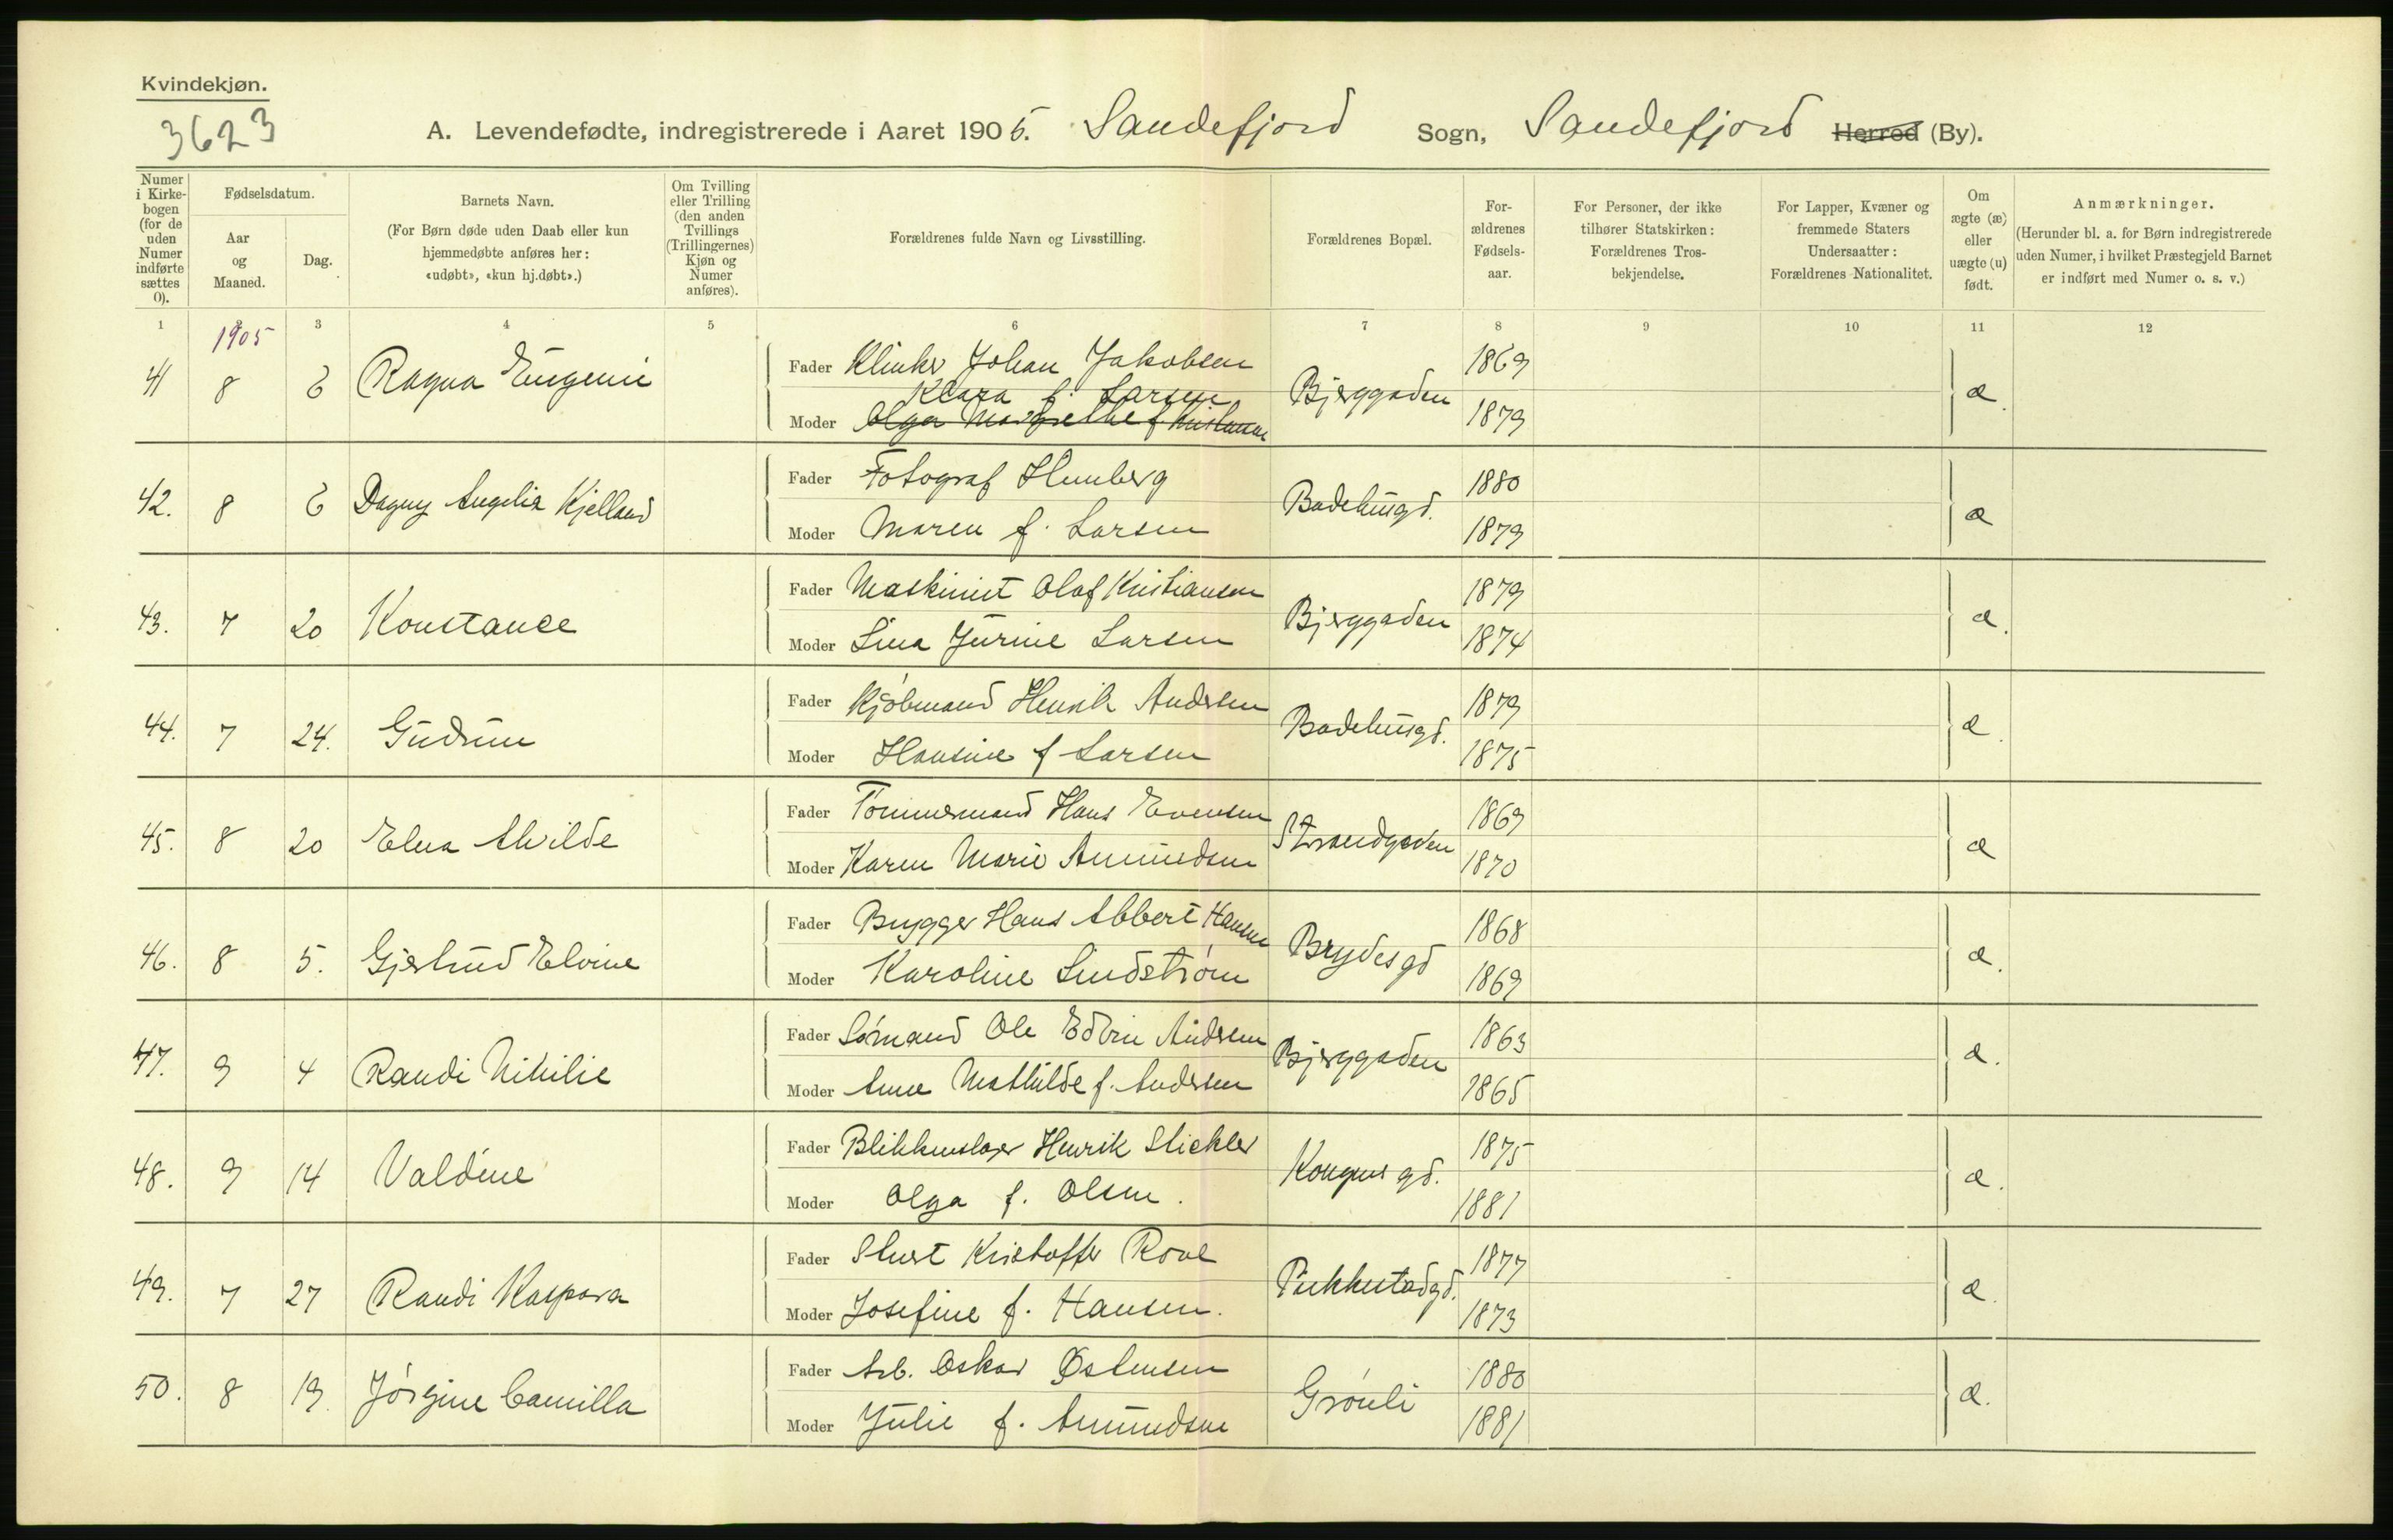 Kvindekjøn.
3623
A. Levendefødte, indregistrerede i Aaret 1905. Sandefjord Sogn, Sandefjord Herred (By).
Numer i Kirkebogen (for de uden Numer indførte sættes 0).
Fødselsdatum.
Aar og Maaned.
Dag.
Barnets Navn.
(For Børn døde uden Daab eller kun hjemmedøbte anføres her: «udøbt», «kun hj.døbt».)
Om Tvilling eller Trilling (den anden Tvillings (Trillingernes) Kjøn og Numer anføres).
Forældrenes fulde Navn og Livsstilling.
Forældrenes Bopæl.
Forældrenes Fødselsaar.
For Personer, der ikke tilhører Statskirken: Forældrenes Trosbekjendelse.
For Lapper, Kvæner og fremmede Staters Undersaatter: Forældrenes Nationalitet.
Om ægte (æ) eller uægte (u) født.
Anmærkninger.
(Herunder bl. a. for Børn indregistrerede uden Numer, i hvilket Præstegjeld Barnet er indført med Numer o. s. v.)
1 2 3 4 5 6 7 8 9 10 11 12
1905
41 8 6 Ragna Eugenie Fader Klinker Johan Jakobsen Bjerggaden 1869 æ.
Klara f. Larsen
Moder Olga Margrethe f Kristiansen 1879
42. 8 6 Dagny Angelia Kjelland Fader Fotograf Humberg Badehusgd. 1880 æ
Moder Maren f. Larsen 1879
43. 7 20 Konstance Fader Maskinist Olaf Kristiansen Bjerggaden 1879 æ.
Moder Lina Jurine Larsen 1874
44. 7 24. Gudrun Fader Kjøbmand Henrik Andersen Badehusgd. 1879 æ.
Moder Hansine f Larsen 1875
45. 8 20 Elna Alvilde Fader Tømmermand Hans Evensen Strandgaden 1869 æ
Moder Karen Marie Amundsen 1870
46. 8 5. Gjertrud Elvine Fader Brygger Hans Albert Hansen Brydesgd 1868 æ.
Moder Karoline Lindstrøm 1869
47. 9 4 Randi Nikilie Fader Sømand Ole Edvin Andersen Bjerggaden 1863 æ.
Moder Anne Mathilde f. Andersen 1865
48. 9 14 Valdine Fader Blikkenslager Henrik Stickler Kongensgd. 1875 æ.
Moder Olga f. Olsen. 1881
49. 7 27 Randi Kaspara Fader Kristoffer Rove 1877 æ.
Moder Josefine f. Hansen. 1873
50. 8 19. Jørgine Camilla Fader Arb. Oskar Østensen Grønli 1880 æ.
Moder Julie f. Amundsen 1881